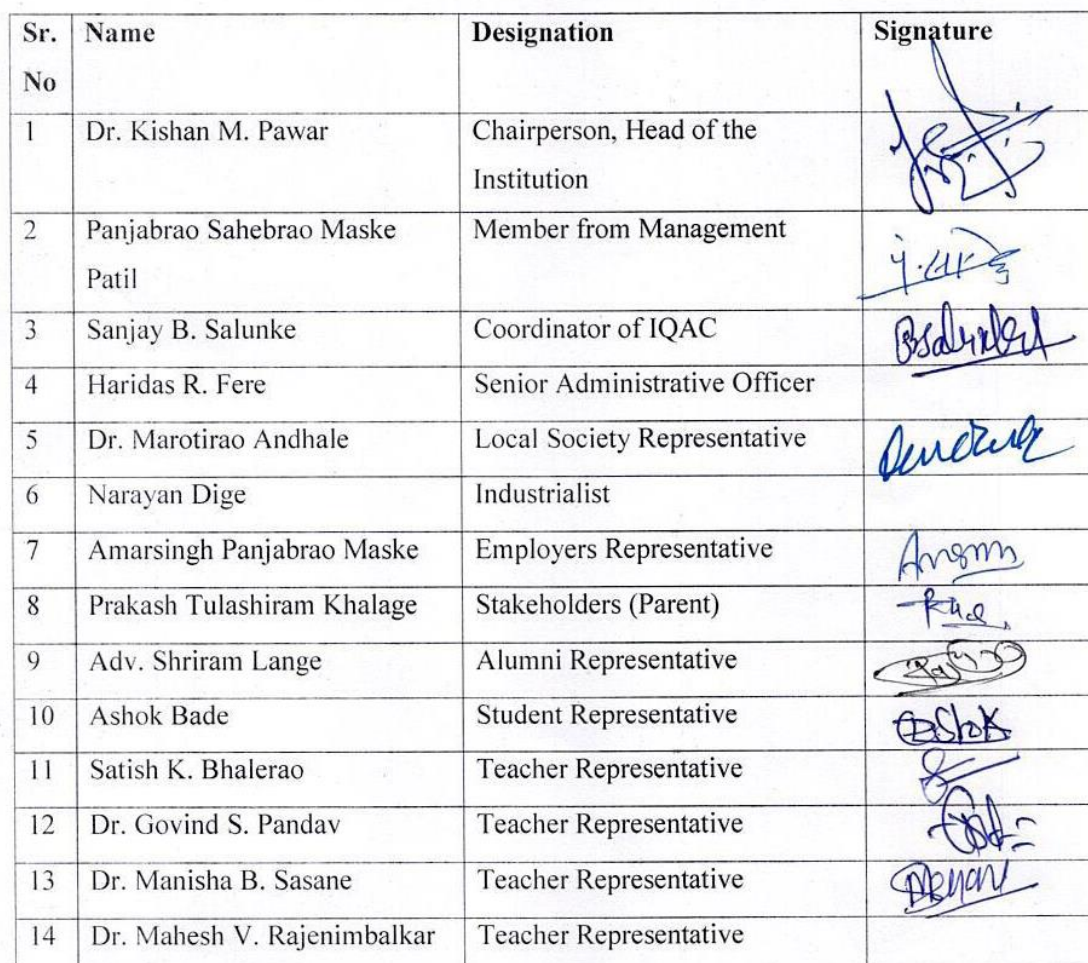 Sr. Name Designation Signature
No
1 Dr. Kishan M. Pawar Chairperson, Head of the
Institution
2 Panjabrao Sahebrao Maske Member from Management
Patil
3 Sanjay B. Salunke Coordinator of IQAC
4 Haridas R. Fere Senior Administrative Officer
5 Dr. Marotirao Andhale Local Society Representative
6 Narayan Dige Industrialist
7 Amarsingh Panjabrao Maske Employers Representative
8 Prakash Tulashiram Khalage Stakeholders (Parent)
9 Adv. Shriram Lange Alumni Representative
10 Ashok Bade Student Representative
11 Satish K. Bhalerao Teacher Representative
12 Dr. Govind S. Pandav Teacher Representative
13 Dr. Manisha B. Sasane Teacher Representative
14 Dr. Mahesh V. Rajenimbalkar Teacher Representative